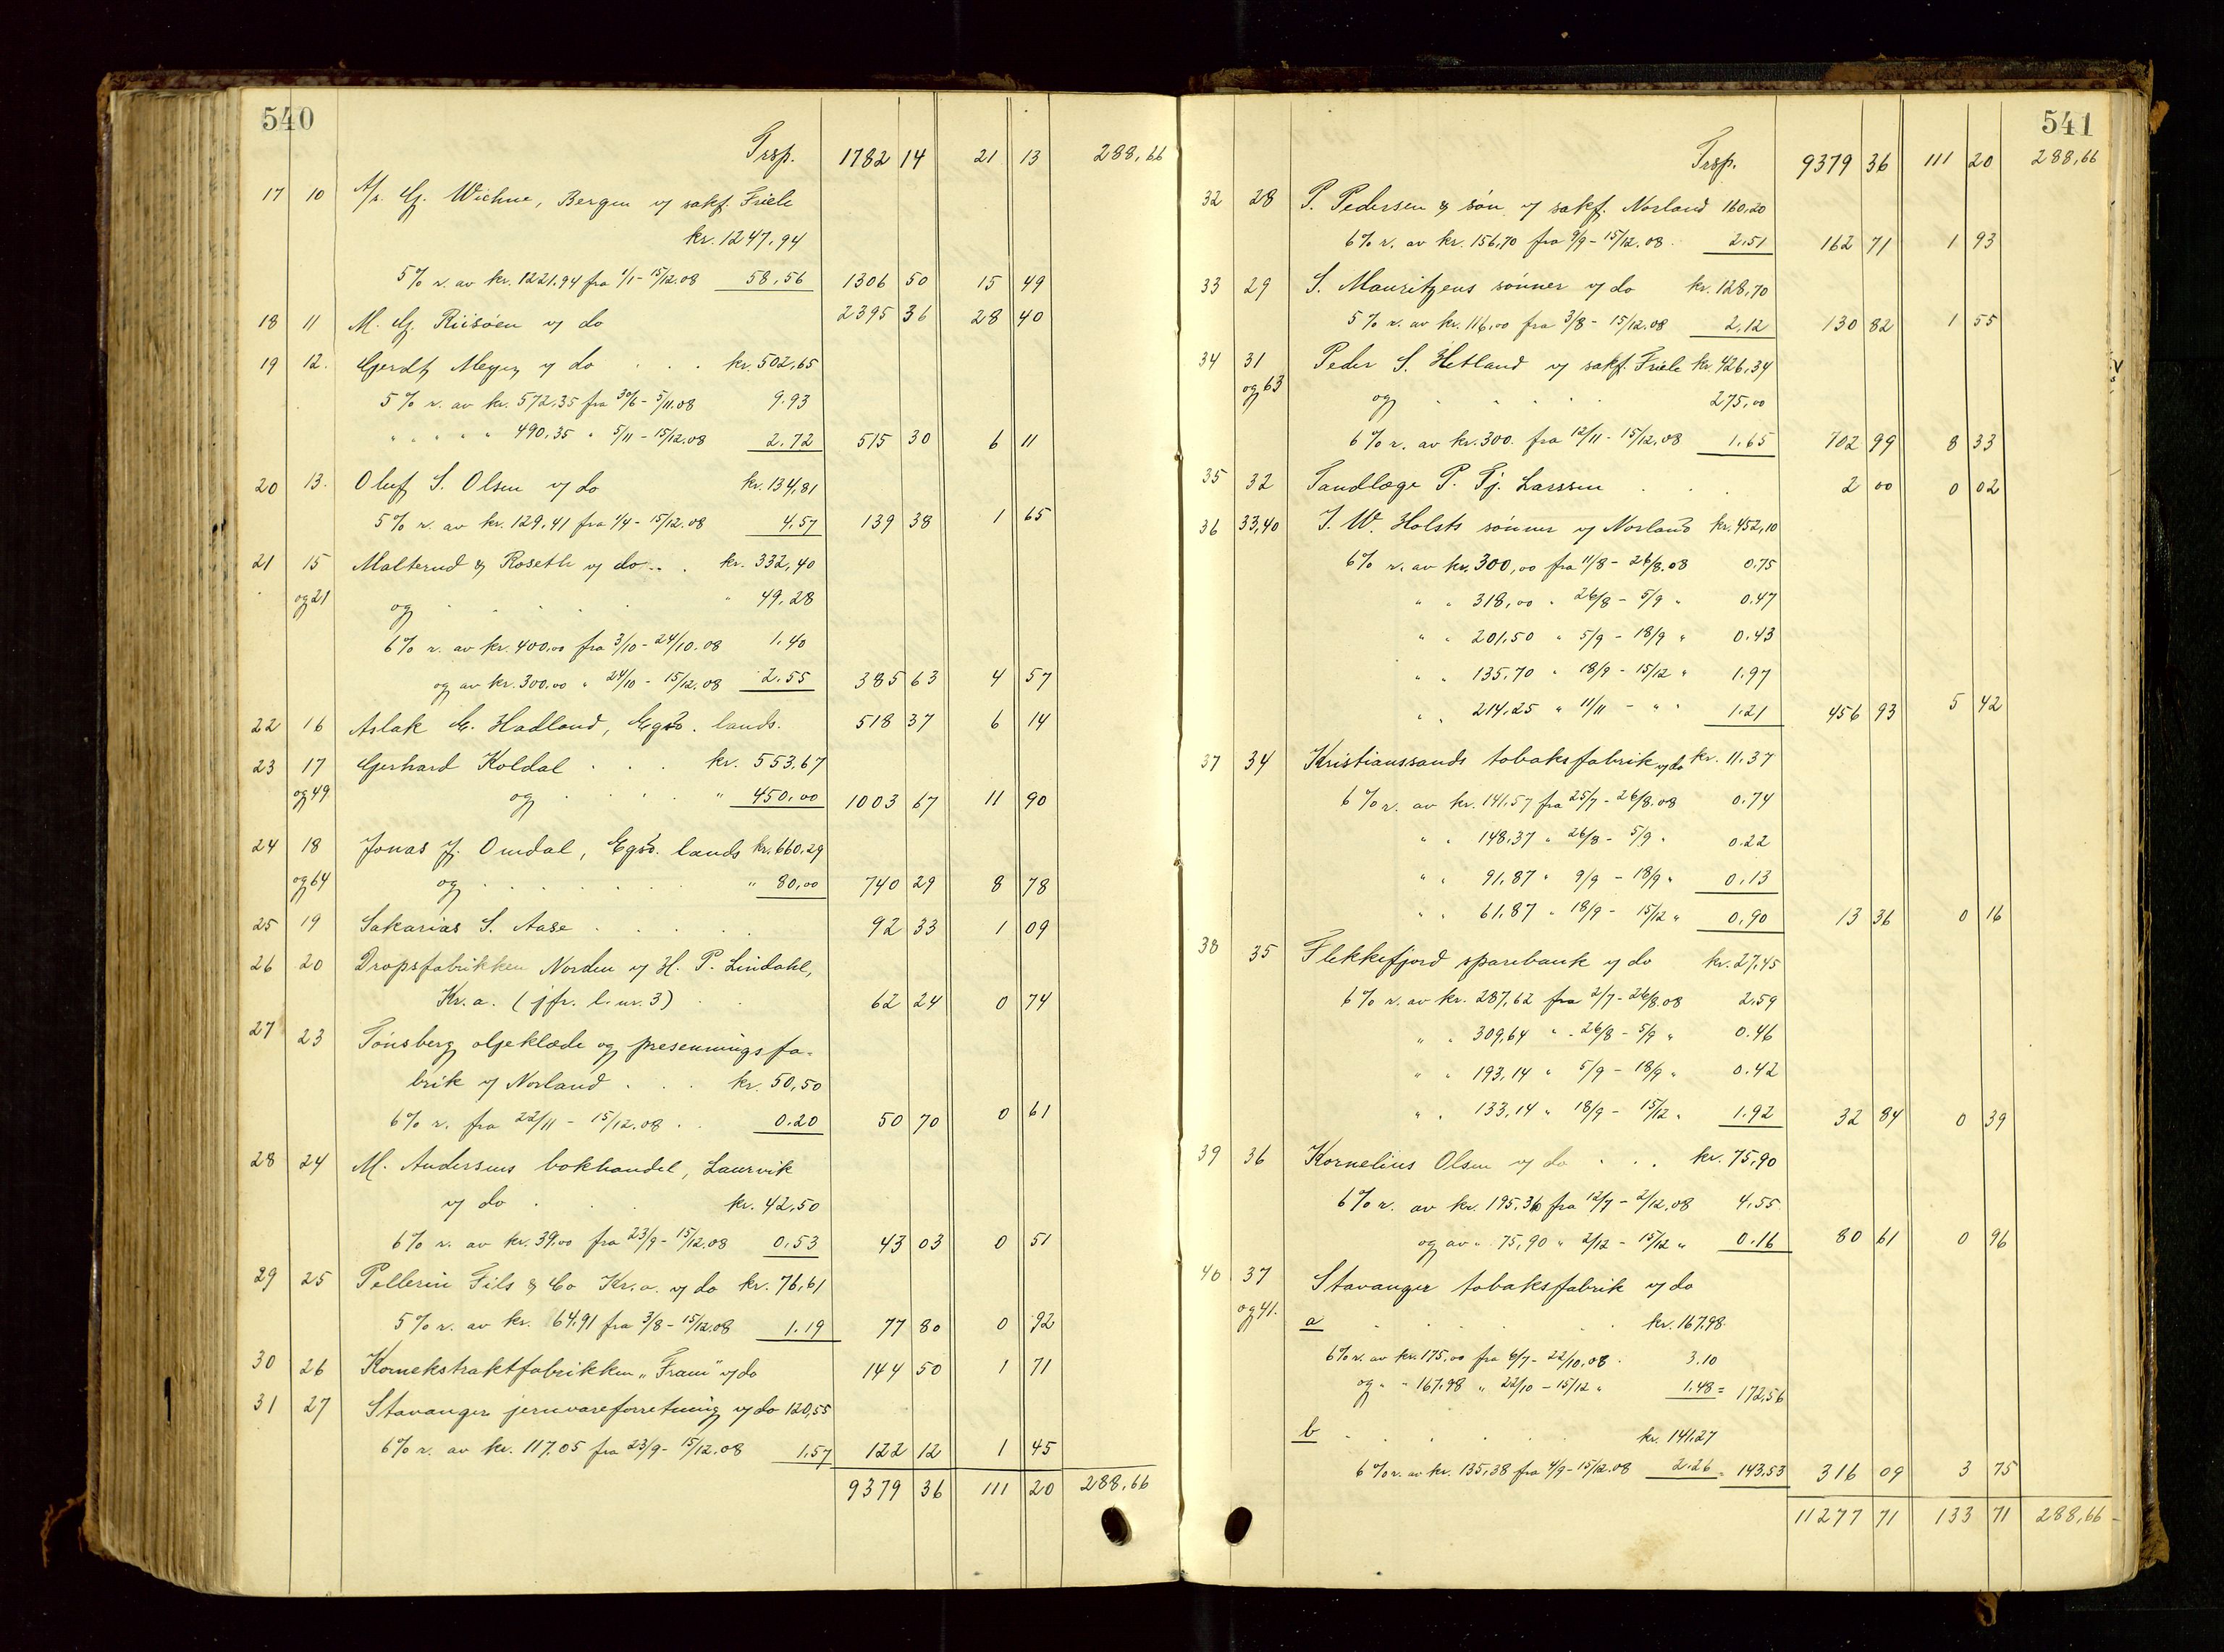 540
Trsp. 1782 14 21 13 288,66
17 10 A/s. G. Wichne, Bergen v/ sakf. Friele
kr. 1247,94
5% r. av kr. 1221,94 fra 1/1 - 15/12.08 58,56 1306 50 15 49
18 11 M. G. Riisöen v/ do 2395 36 28 40
19 12. Gerdt Meyer v/ do . . . kr. 502,65
5% r. av kr. 572,35 fra 30/6 - 5/11.08 9.93
" " " " " 490,35 " 5/11 - 15/12.08 2.72 515 30 6 11
20 13. Oluf S. Olsen v/ do kr. 134,81
5% r. av kr. 129,41 fra 1/4 - 15/12.08 4,57 139 38 1 65
21 15 Malterud & Roseth v/ do . . . kr. 332,40
og 21 og . . . . . " 49,28
6% r. av kr. 400,00 fra 3/10 - 24/10.08 1.40
og av kr. 300,00 " 24/10 - 15/12.08 2.55 385 63 4 57
22 16 Aslak E. Hadland, Egsd. lands. 518 37 6 14
23 17 Gerhard Koldal . . . kr. 553,67
og 49 og . . . . " 450,00 1003 67 11 90
24 18 Jonas J. Omdal, Egsd. lands kr. 660,29
og 64 og . . . . . . " 80,00 740 29 8 78
25 19 Sakarias S. Aase . . . . . 92 33 1 09
26 20 Dropsfabrikken Norden v/ H. P. Lindahl,
Kr.a. (jfr. l. nr. 3) . . 62 24 0 74
27 23 Tönsberg oljeklæde og presenningsfa-
brik v/ Norland . . . kr. 50,50
6% r. fra 22/11 - 15/12.08 . . 0.20 50 70 0 61
28 24 M. Andersens bokhandel, Laurvik
v/ do . . . kr. 42,50
6% r. av kr. 39,00 fra 23/9 - 15/12.08 0,53 43 03 0 51
29 25 Pellerin Fils & Co Kr.a. v/ do kr. 76,61
5% r. av kr. 64,91 fra 3/8 - 15/12.08 1.19 77 80 0 92
30 26 Kornekstraktfabrikken "Fram" v/ do 144 50 1 71
31 27 Stavanger jernvareforretning v/ do 120,55
6% r. av kr. 117,05 fra 23/9 - 15/12.08 1,57 122 12 1 45
9379 36 111 20 288,66
541
Trsp. 9379 36 111 20 288,66
32 28 P. Pedersen & sön v/ sakf. Norland 160,20
6% r. av kr. 156,70 fra 9/9 - 15/12.08 . 2,51 162 71 1 93
33 29 S. Mauritzens sönner v/ do kr. 128,70
5% r. av kr. 116,00 fra 3/8 - 15/12.08 2,12 130 82 1 55
34 31 Peder S. Hetland v/ sakf. Friele kr. 426,34
og 63 og . . . . . 275,00
6% r. av kr. 300. fra 12/11 - 15/12.08 1.65 702 99 8 33
35 32 Tandlæge P. Tj. Larssen . . . 2 00 0 02
36 33,40 J. W. Holsts sönner v/ Norland kr. 452,10
6% r. av kr. 300,00 fra 11/8 - 26/8.08 0.75
" " 318,00 " 26/8 - 5/9 " 0.47
" " 201,50 " 5/9 - 18/9 " 0.43
" " 135,70 " 18/9 - 15/12 " 1.97
" " 214,25 " 11/11 - " " 1.21 456 93 5 42
37 34 Kristianssands tobaksfabrik v/ do kr. 11.37
6% r. av kr. 141,57 fra 25/7 - 26/8.08 0.74
" " 148,37 " 26/8 - 5/9 " 0.22
" " 91,87 " 9/9 - 18/9 " 0.13
" " 61,87 " 18/9 - 15/12 " 0,90 13 36 0 16
38 35 Flekkefjord sparebank v/ do kr. 27,45
6% r. av kr. 287,62 fra 2/7 - 26/8.08 2,59
" " 309,64 " 26/8 - 5/9 " 0.46
" " 193,14 " 5/9 - 18/9 " 0.42
" " 133,14 " 18/9 - 15/12 " 1.92 32 84 0 39
39 36 Kornelius Olsen v/ do . . . kr. 75,90
6% r. av kr. 195,36 fra 12/7 - 2/12.08 4,55
og av " 75,90 " 2/12 - 15/12 " 0.16 80 61 0 96
40 37 Stavanger tobaksfabrik v/ do
og 41. a . . . . . kr. 167,98.
6% r. av kr. 175,00 fra 6/7 - 22/10.08 . 3.10
og " " 167,98 " 22/10 - 15/12 " 1.48 = 172,56
b . . . . . kr. 141,27
6% r. av kr. 135,38 fra 4/9 - 15/12.08 2.26 " 143,53 316 09 3 75
11277 71 133 71 288,66